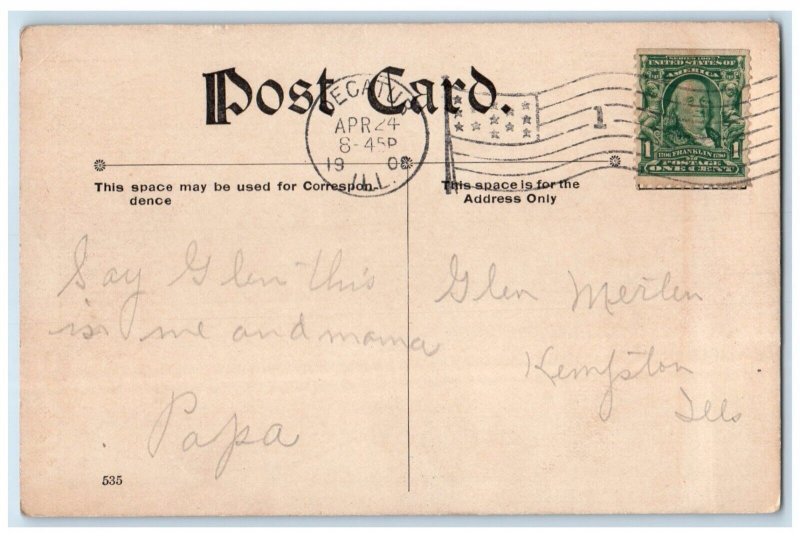 Post Card.
DECATUR
APR 24
8-45P
1908
ILL.
1
SERIES 1902
UNITED STATES OF
AMERICA
1706 FRANKLIN 1790
1 POSTAGE 1
ONE CENT
This space may be used for Correspon-
dence
This space is for the
Address Only
Say Glen this
is me and mama
Papa
Glen
Kempton
Ills
535